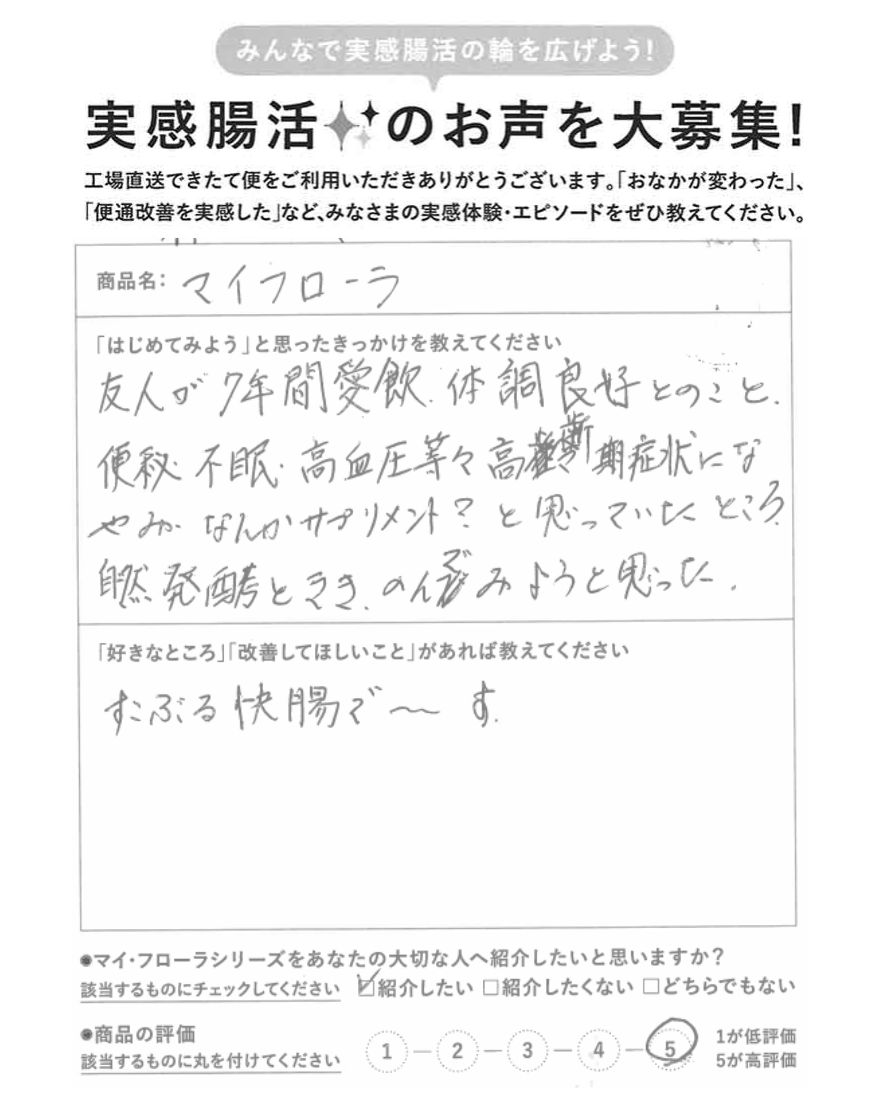 みんなで実感腸活の輪を広げよう!
実感腸活のお声を大募集!
工場直送できたて便をご利用いただきありがとうございます。「おなかが変わった」、
「便通改善を実感した」など、みなさまの実感体験・エピソードをぜひ教えてください。
商品名: マイフローラ
「はじめてみよう」と思ったきっかけを教えてください
友人が7年間愛飲.体調良好とのこと.
便秘.不眠.高血圧等々高齢期症状にな
やみ.なんかサプリメント?と思っていたところ.
自然発酵ときき.のんでみようと思った.
「好きなところ」「改善してほしいこと」があれば教えてください
すこぶる快腸で〜す.
●マイ・フローラシリーズをあなたの大切な人へ紹介したいと思いますか?
該当するものにチェックしてください ☑紹介したい □紹介したくない □どちらでもない
●商品の評価
該当するものに丸を付けてください
1 - 2 - 3 - 4 - 5
1が低評価
5が高評価